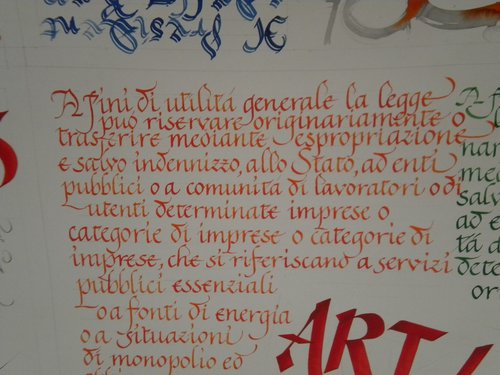 A fini di utilitá generale la legge
può riservare originariamente o
trasferire mediante espropriazione
e salvo indennizzo, allo Stato, ad enti
pubblici o a comunità di lavoratori o di
utenti determinate imprese o
categorie di imprese o categorie di
imprese, che si riferiscano a servizi
pubblici essenziali
o a fonti di energia
o a situazioni
di monopolio ed
ART
A f
nar
med
salv
ad e
tá d
dete
or